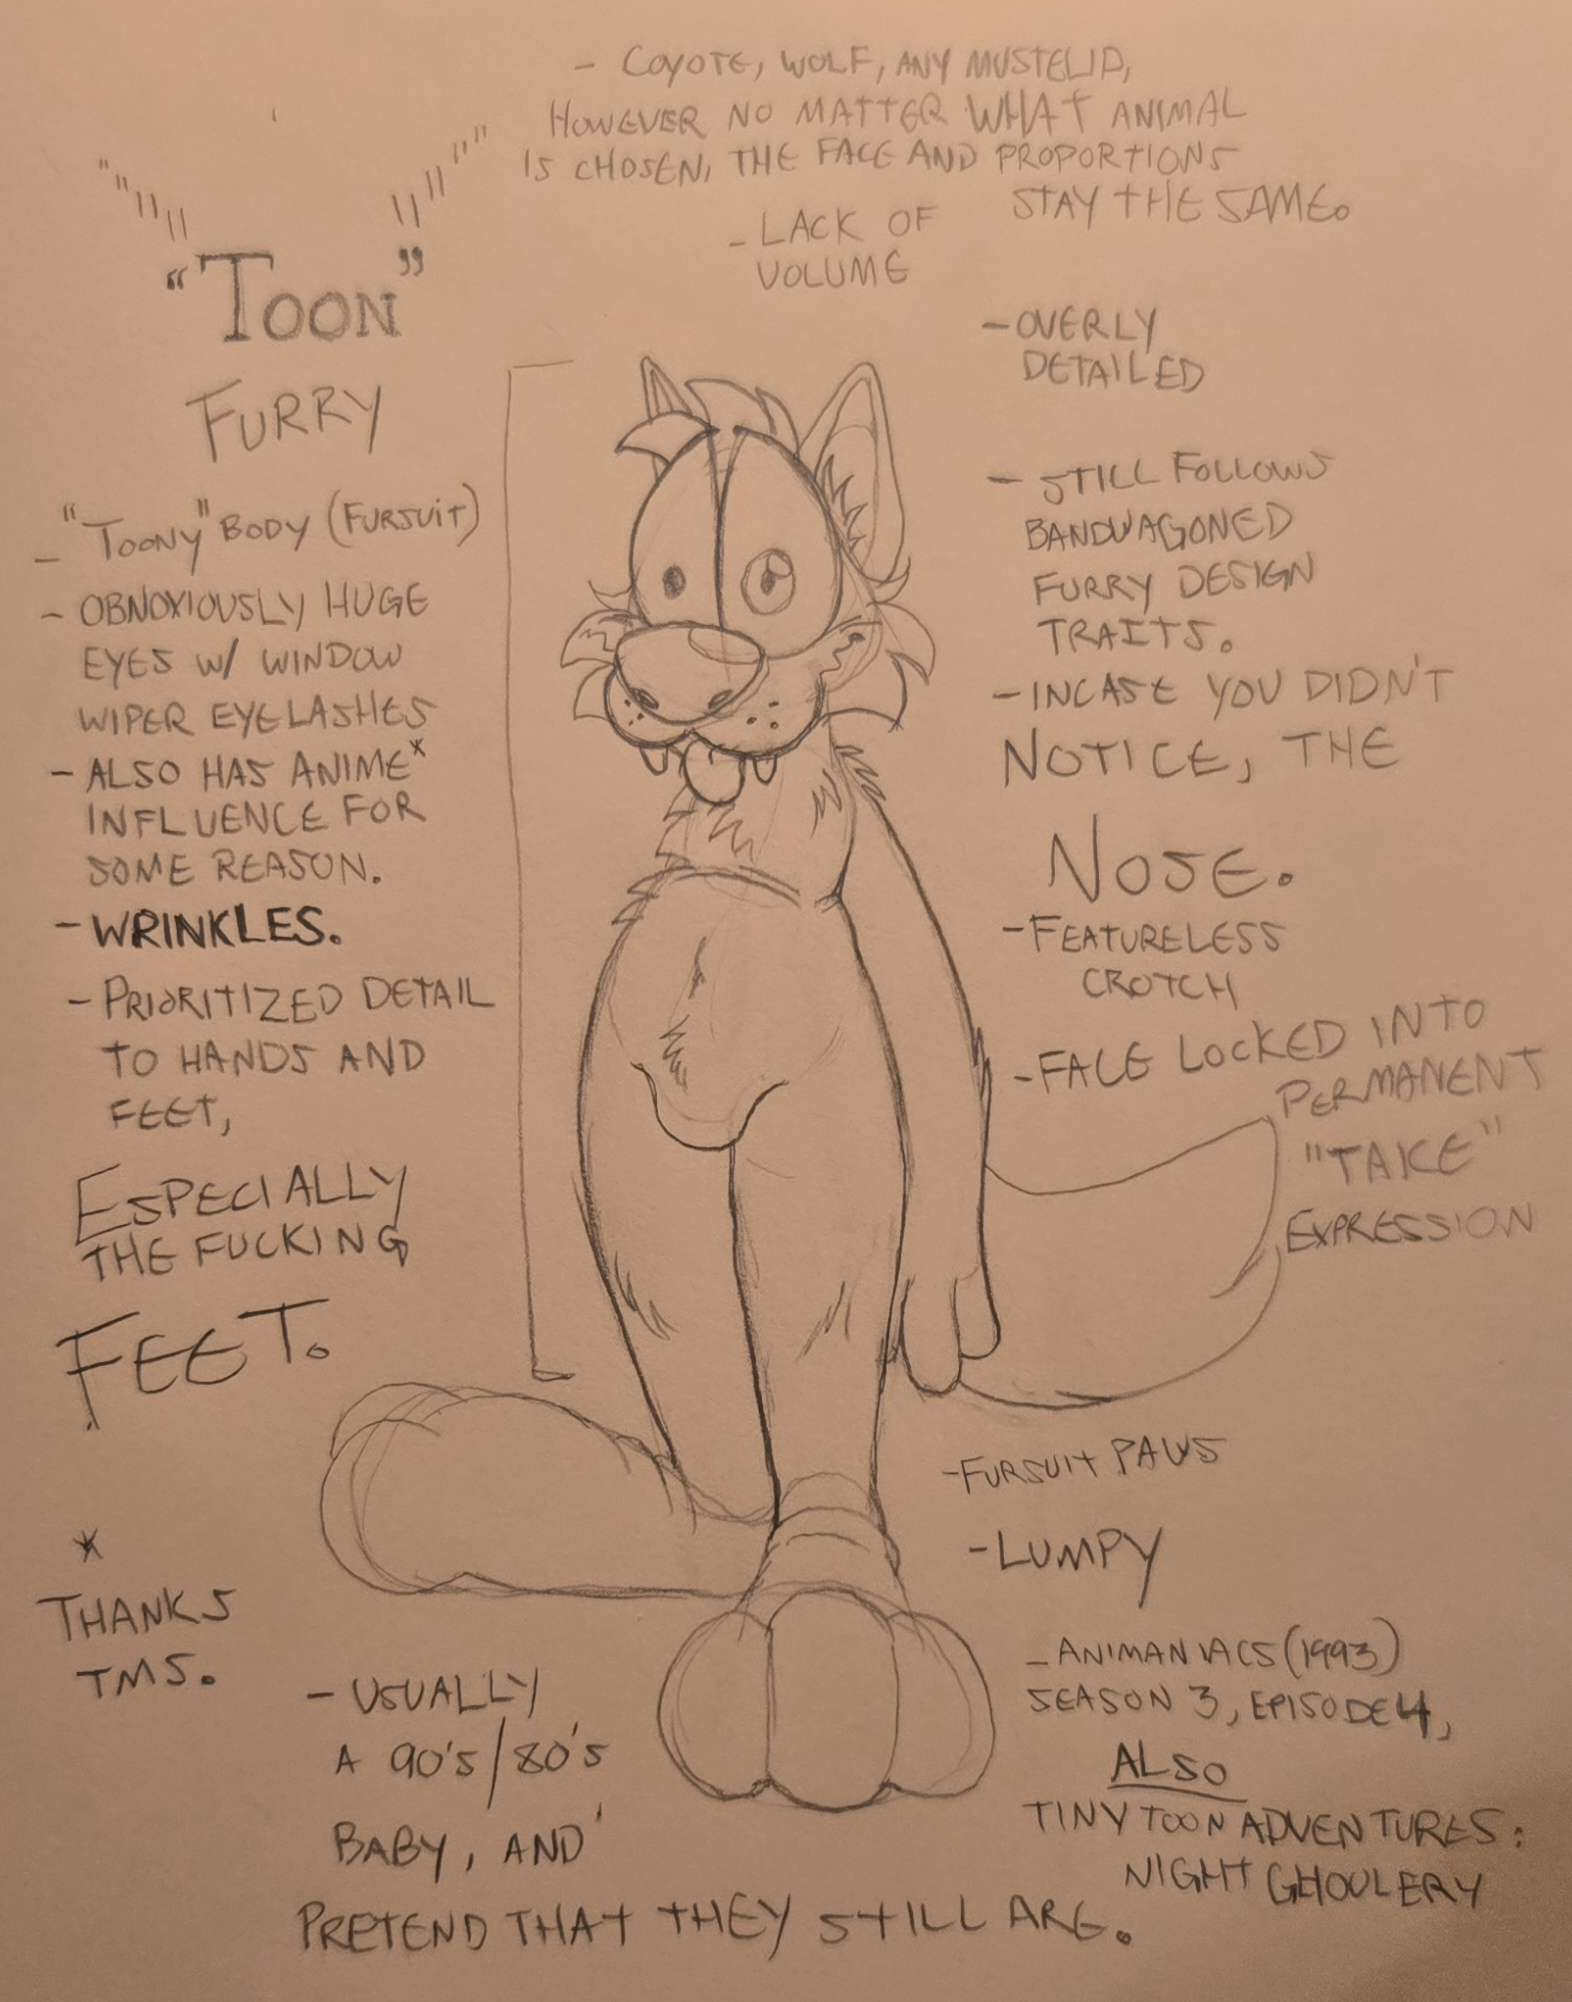 - COYOTE, WOLF, ANY MUSTELID,
HOWEVER NO MATTER WHAT ANIMAL
IS CHOSEN, THE FACE AND PROPORTIONS
STAY THE SAME.
- LACK OF
VOLUME
"TOON"
FURRY
- "TOONY" BODY (FURSUIT)
- OBNOXIOUSLY HUGE
EYES W/ WINDOW
WIPER EYELASHES
- ALSO HAS ANIME*
INFLUENCE FOR
SOME REASON.
- WRINKLES.
- PRIORITIZED DETAIL
TO HANDS AND
FEET,
ESPECIALLY
THE FUCKING
FEET.
*
THANKS
TMS.
- USUALLY
A 90's/80's
BABY, AND
PRETEND THAT THEY STILL ARE.
- OVERLY
DETAILED
- STILL FOLLOWS
BANDWAGONED
FURRY DESIGN
TRAITS.
- INCASE YOU DIDN'T
NOTICE, THE
NOSE.
- FEATURELESS
CROTCH
- FACE LOCKED INTO
PERMANENT
"TAKE"
EXPRESSION
- FURSUIT PAWS
- LUMPY
- ANIMANIACS (1993)
SEASON 3, EPISODE 4,
ALSO
TINY TOON ADVENTURES:
NIGHT GHOULERY